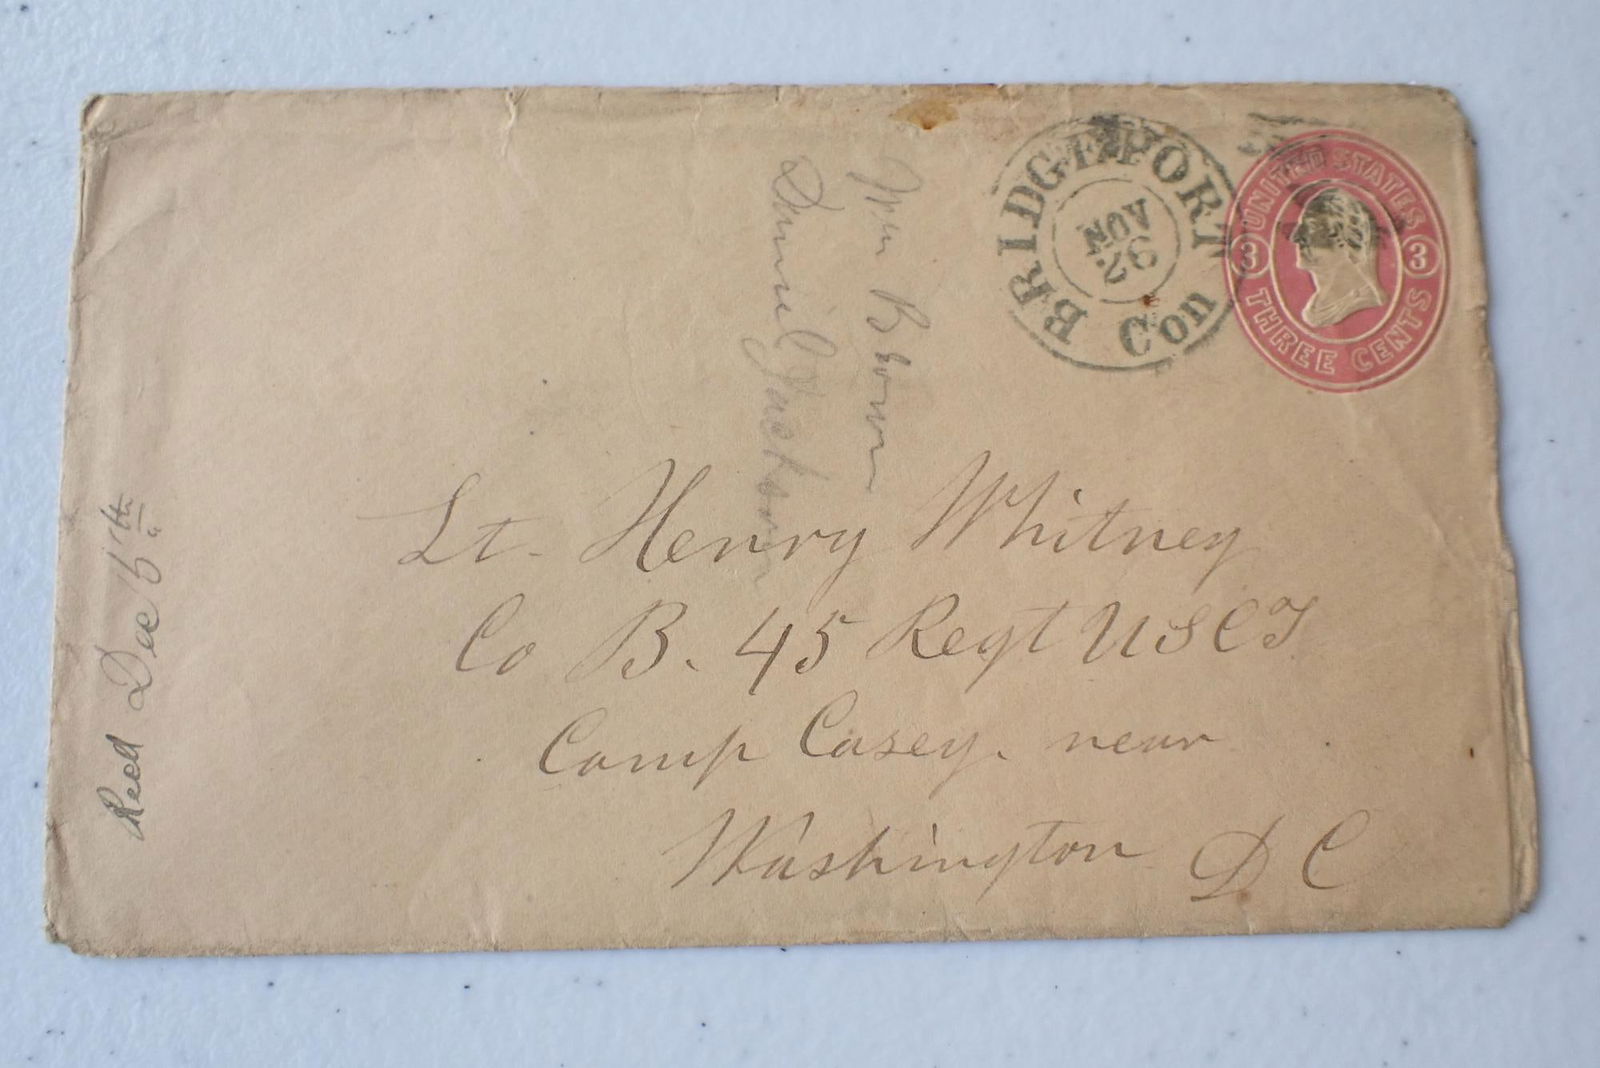 BRIDGEPORT
Con
NOV
26
UNITED STATES
3 3
THREE CENTS
Wm Brown
Daniel Jackson
Lt. Henry Whitney
Co B. 45 Regt USCT
Camp Casey. near
Washington D C
Recd Dec 5th